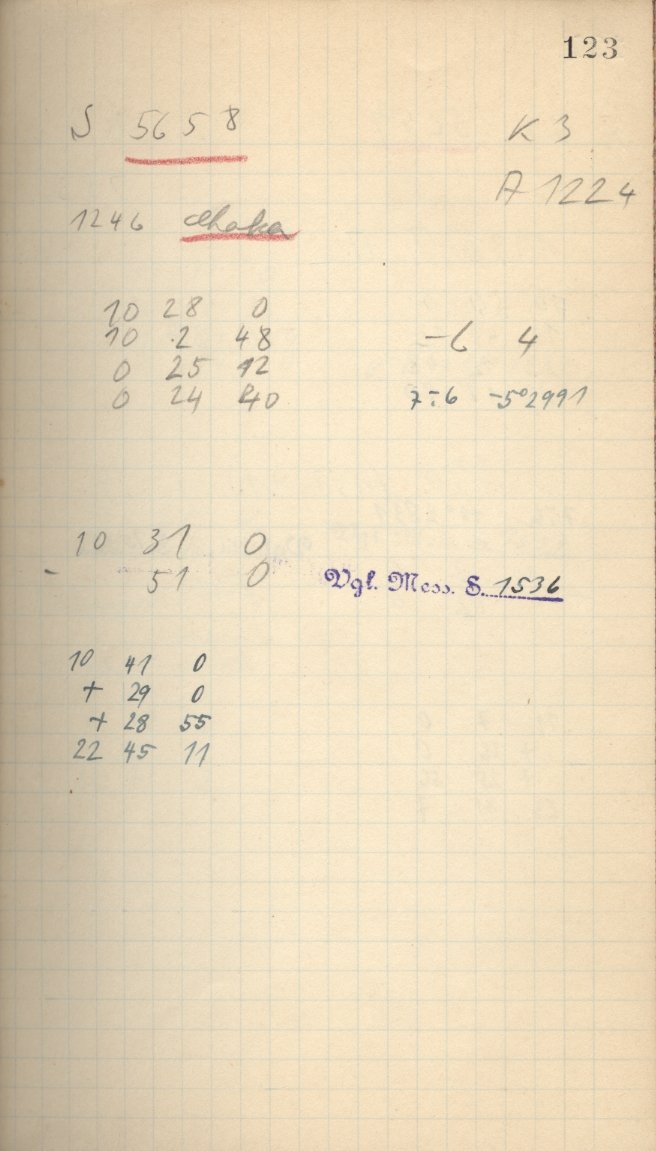 123
S 5658 K 3
A 1224
1246 Chaka
10 28 0
10 2 48 -6 4
0 25 12
0 24 40 7-6 -5°2991
10 31 0
- 51 0 Vgl. Mess. S. 1536
10 41 0
+ 29 0
+ 28 55
22 45 11